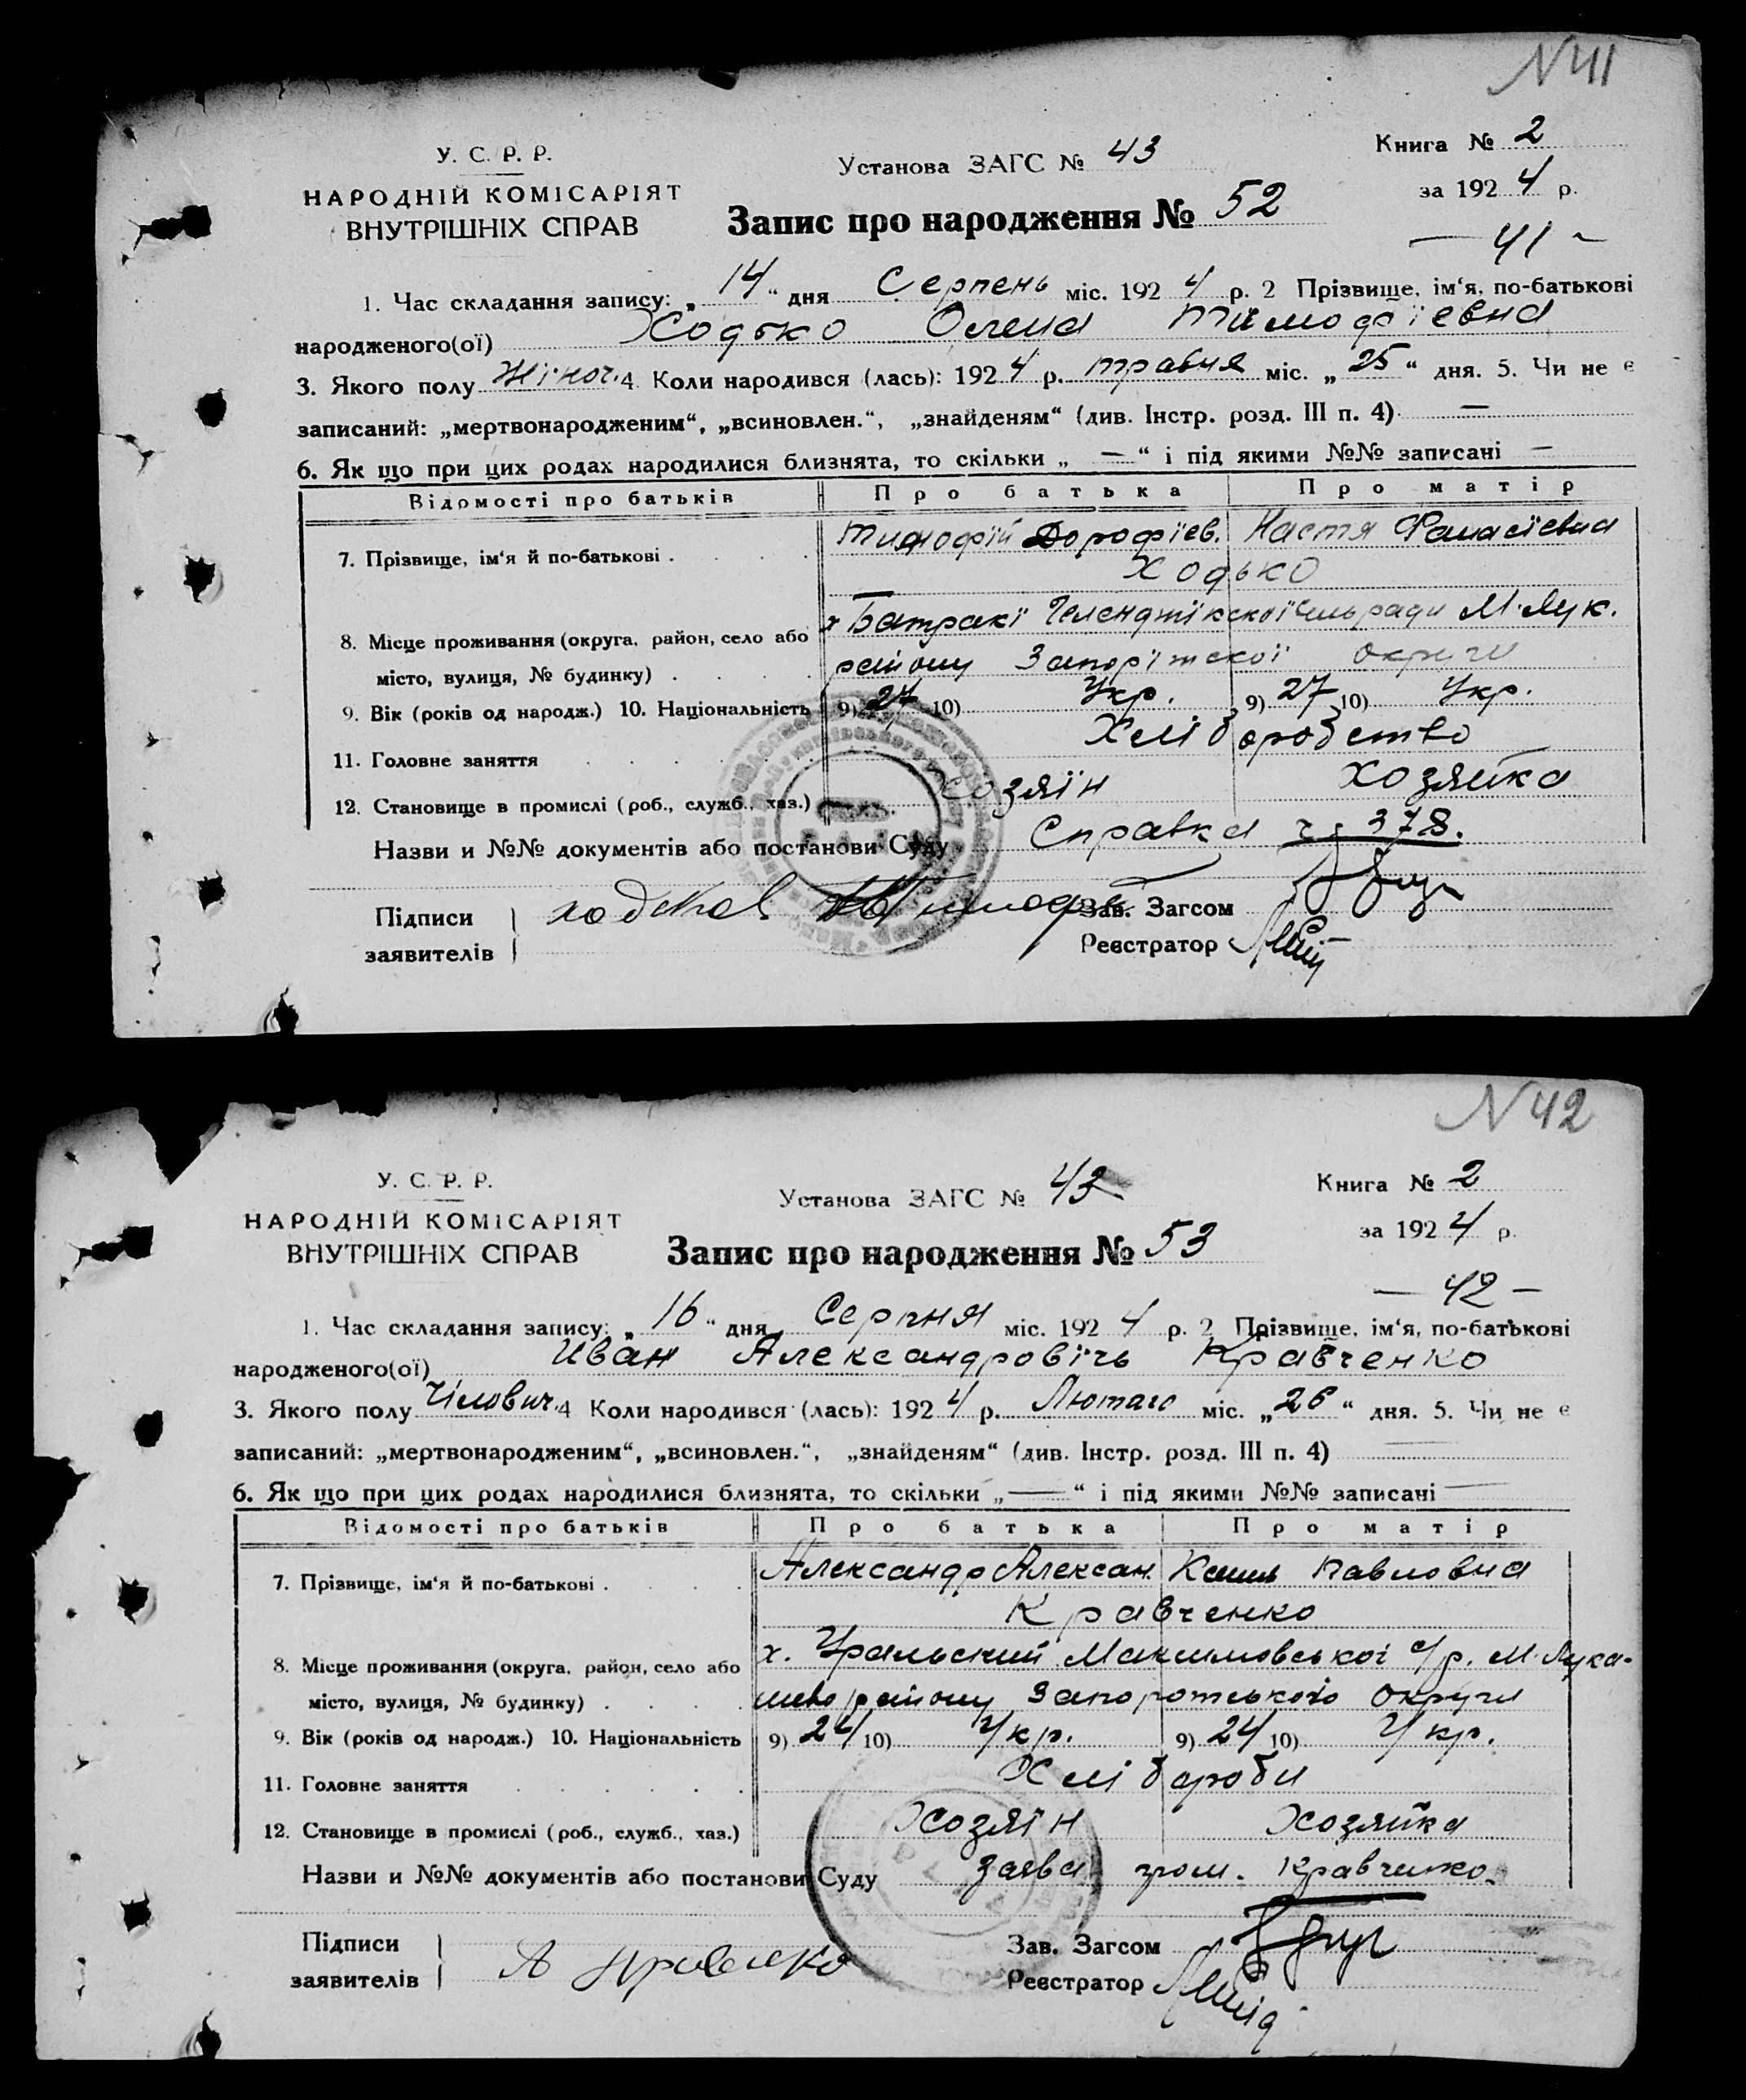 N 41
У. С. Р. Р.
НАРОДНІЙ КОМІСАРІЯТ
ВНУТРІШНІХ СПРАВ
Установа ЗАГС № 43
Книга № 2
за 1924 р.
Запис про народження № 52
— 41 —
1. Час складання запису: „14“ дня Серпень міс. 1924 р. 2 Прізвище, ім‘я, по-батькові
народженого(ої) Ходько Олена Тимофієвна
3. Якого полу Жіноч. 4. Коли народився (лась): 1924 р. травня міс. „25“ дня. 5. Чи не є
записаний: „мертвонародженим“, „всиновлен.“, „знайденям“ (див. Інстр. розд. III п. 4) —
6. Як що при цих родах народилися близнята, то скільки „ — “ і під якими №№ записані —
Відомості про батьків Про батька Про матір
7. Прізвище, ім‘я й по-батькові . Тимофій Дорофіев. Настя Фанасіевна
Ходько
8. Місце проживання (округа, район, село або х Батракі сільради М. Лук.
місто, вулиця, № будинку) . району Запоріжскої округи
9. Вік (років од народж.) 10. Національність 9) 27 10) Укр. 9) 27 10) Укр.
11. Головне заняття Хліборобство
12. Становище в промислі (роб., служб., хаз.) Хозяїн Хозяйка
Назви и №№ документів або постанови Суду Справка ч. 378.
Підписи заявителів
Зав. Загсом
Реєстратор
N 42
У. С. Р. Р.
НАРОДНІЙ КОМІСАРІЯТ
ВНУТРІШНІХ СПРАВ
Установа ЗАГС № 43
Книга № 2
за 1924 р.
Запис про народження № 53
— 42 —
1. Час складання запису: „16“ дня Серпня міс. 1924 р. 2 Прізвище, ім‘я, по-батькові
народженого(ої) Иван Александровічь Кравченко
3. Якого полу Чілович. 4 Коли народився (лась): 1924 р. Лютаго міс. „26“ дня. 5. Чи не є
записаний: „мертвонародженим“, „всиновлен.“, „знайденям“ (див. Інстр. розд. III п. 4) —
6. Як що при цих родах народилися близнята, то скільки „ — “ і під якими №№ записані —
Відомості про батьків Про батька Про матір
7. Прізвище, ім‘я й по-батькові . Александр Алексан. Павловна
Кравченко
8. Місце проживання (округа, район, село або х. Уральский Максимовської с/р. М. Лука-
місто, вулиця, № будинку) . шево району Запорожського Округи
9. Вік (років од народж.) 10. Національність 9) 24 10) Укр. 9) 24 10) Укр.
11. Головне заняття Хлібороби
12. Становище в промислі (роб., служб., хаз.) Хозяїн Хозяйка
Назви и №№ документів або постанови Суду Заява гром. Кравченко.
Підписи заявителів
Зав. Загсом
Реєстратор